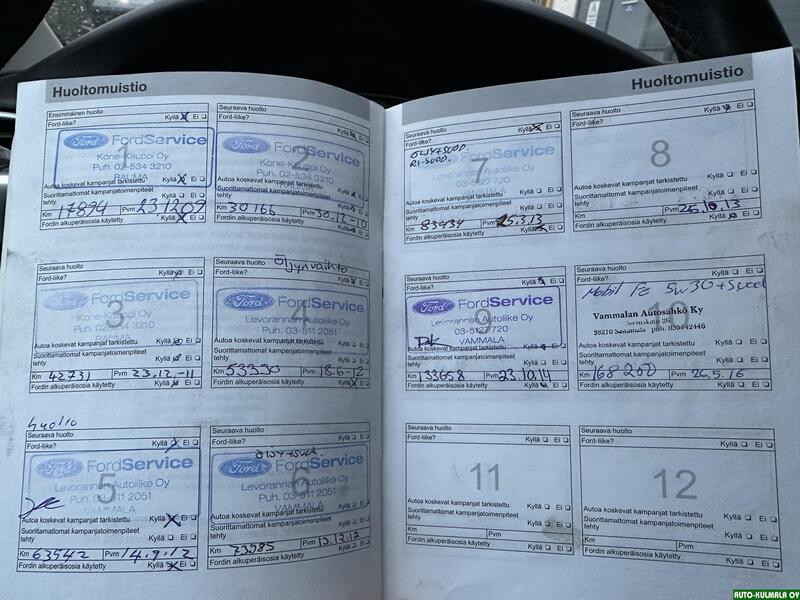 Huoltomuistio
Ensimmäinen huolto
Ford-liike? Kyllä Ei
1
Ford FordService
Kone-Kauppi Oy
Puh. 02-534 3210
RAUMA
Autoa koskevat kampanjat tarkistettu Kyllä Ei
Suorittamattomat kampanjatoimenpiteet
tehty Kyllä Ei
Km 17894 Pvm 23.12.09
Fordin alkuperäisosia käytetty Kyllä Ei
Seuraava huolto
Ford-liike? Kyllä Ei
2
Ford FordService
Kone-Kauppi Oy
Puh. 02-534 3210
RAUMA
Autoa koskevat kampanjat tarkistettu Kyllä Ei
Suorittamattomat kampanjatoimenpiteet
tehty Kyllä Ei
Km 30166 Pvm 30.12.10
Fordin alkuperäisosia käytetty Kyllä Ei
Seuraava huolto
Ford-liike? Kyllä Ei
3
Ford FordService
Kone-Kauppi Oy
Puh. 02-534 3210
Autoa koskevat kampanjat tarkistettu Kyllä Ei
Suorittamattomat kampanjatoimenpiteet
tehty Kyllä Ei
Km 42731 Pvm 23.12.-11
Fordin alkuperäisosia käytetty Kyllä Ei
Öljynvaihto
Seuraava huolto
Ford-liike? Kyllä Ei
4
Ford FordService
Levorannan Autoliike Oy
Puh. 03-511 2051
VAMMALA
Autoa koskevat kampanjat tarkistettu Kyllä Ei
Suorittamattomat kampanjatoimenpiteet
tehty Kyllä Ei
Km 53350 Pvm 18.6-12
Fordin alkuperäisosia käytetty Kyllä Ei
huolto
Seuraava huolto
Ford-liike? Kyllä Ei
5
Ford FordService
Levorannan Autoliike Oy
Puh. 03-511 2051
VAMMALA
Autoa koskevat kampanjat tarkistettu Kyllä Ei
Suorittamattomat kampanjatoimenpiteet
tehty Kyllä Ei
Km 63942 Pvm 14.9.12
Fordin alkuperäisosia käytetty Kyllä Ei
Seuraava huolto
Ford-liike? Kyllä Ei
6
Ford FordService
Levorannan Autoliike Oy
Puh. 03-511 2051
VAMMALA
Autoa koskevat kampanjat tarkistettu Kyllä Ei
Suorittamattomat kampanjatoimenpiteet
tehty Kyllä Ei
Km 73985 Pvm 13.12.12
Fordin alkuperäisosia käytetty Kyllä Ei
Huoltomuistio
Seuraava huolto
Ford-liike? Kyllä Ei
7
FordService
Levorannan Autoliike Oy
03-5127 720
VAMMALA
Autoa koskevat kampanjat tarkistettu Kyllä Ei
Suorittamattomat kampanjatoimenpiteet
tehty Kyllä Ei
Km 83434 Pvm 25.3.13
Fordin alkuperäisosia käytetty Kyllä Ei
Seuraava huolto
Ford-liike? Kyllä Ei
8
Autoa koskevat kampanjat tarkistettu Kyllä Ei
Suorittamattomat kampanjatoimenpiteet
tehty Kyllä Ei
Km Pvm 25.10.13
Fordin alkuperäisosia käytetty Kyllä Ei
Seuraava huolto
Ford-liike? Kyllä Ei
9
Ford FordService
Levorannan Autoliike Oy
03-5127 720
VAMMALA
Autoa koskevat kampanjat tarkistettu Kyllä Ei
Suorittamattomat kampanjatoimenpiteet
tehty Kyllä Ei
Km 133658 Pvm 23.10.14
Fordin alkuperäisosia käytetty Kyllä Ei
Seuraava huolto
Ford-liike? Kyllä Ei
Mobil Fe 5w30 + suod
10
Vammalan Autosähkö Ky
38210 Sastamala
Autoa koskevat kampanjat tarkistettu Kyllä Ei
Suorittamattomat kampanjatoimenpiteet
tehty Kyllä Ei
Km 168200 Pvm 26.5.16
Fordin alkuperäisosia käytetty Kyllä Ei
Seuraava huolto
Ford-liike? Kyllä Ei
11
Autoa koskevat kampanjat tarkistettu Kyllä Ei
Suorittamattomat kampanjatoimenpiteet
tehty Kyllä Ei
Km Pvm
Fordin alkuperäisosia käytetty Kyllä Ei
Seuraava huolto
Ford-liike? Kyllä Ei
12
Autoa koskevat kampanjat tarkistettu Kyllä Ei
Suorittamattomat kampanjatoimenpiteet
tehty Kyllä Ei
Km Pvm
Fordin alkuperäisosia käytetty Kyllä Ei
AUTO-KULMALA OY